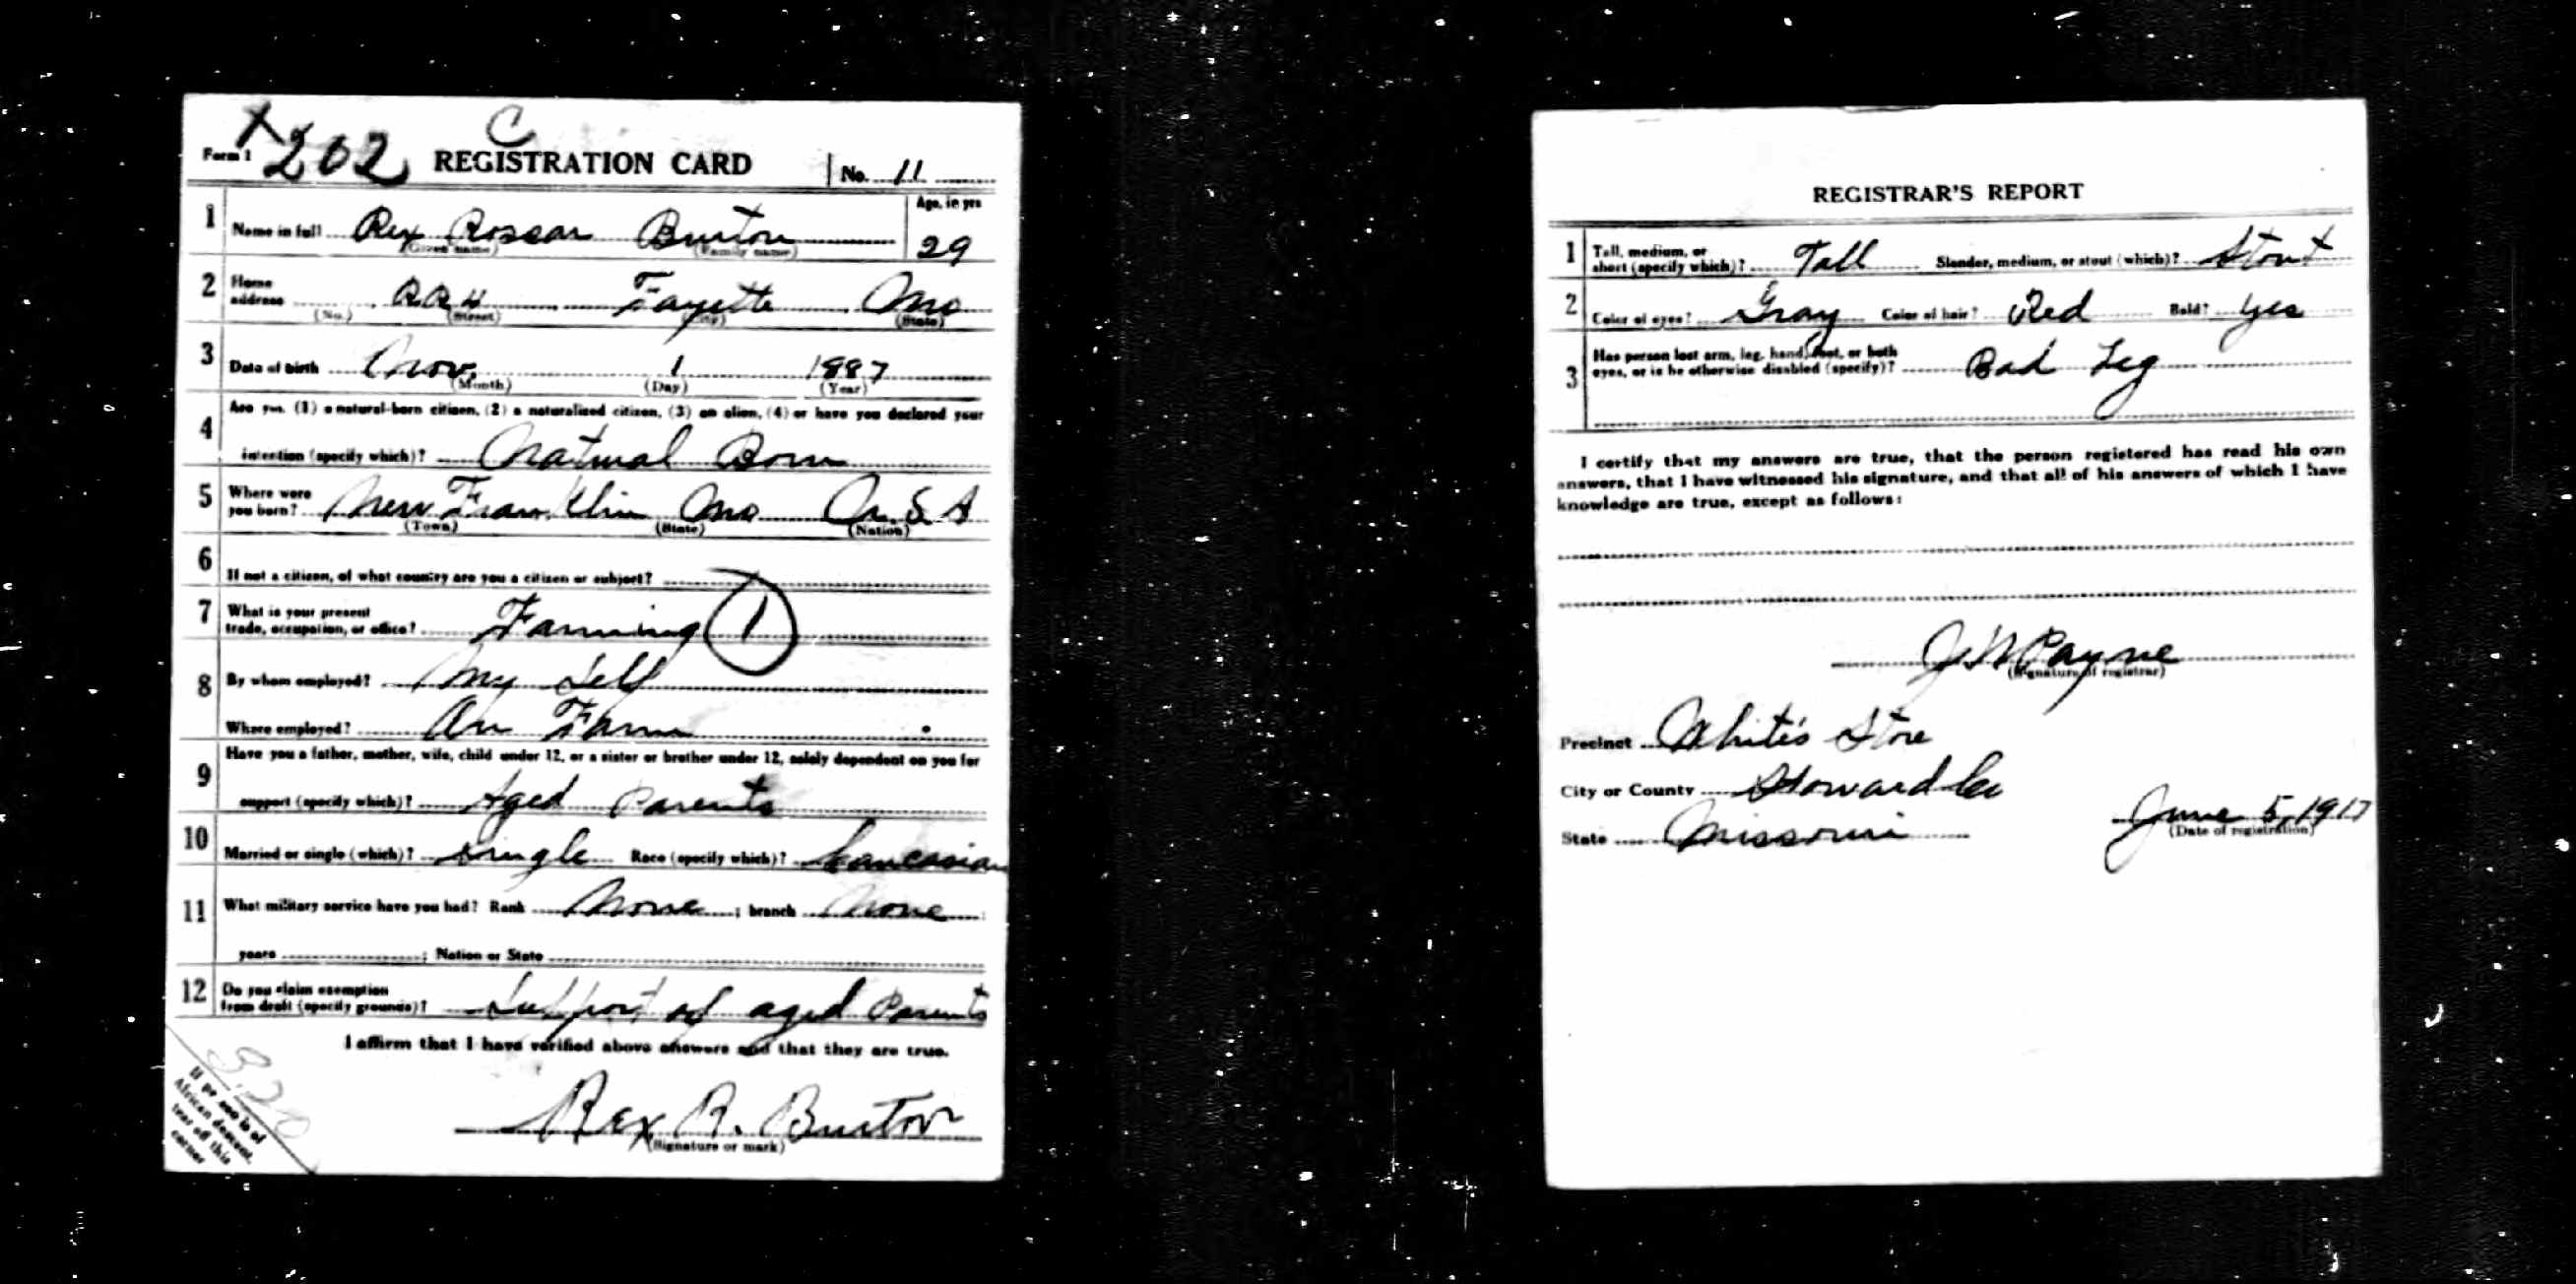 X C
Form 1 202 REGISTRATION CARD No. 11
Age, in yrs
1 Name in full Rex Roscar Burton 29
(Given name) (Family name)
2 Home address RR4 Fayette Mo
(No.) (Street) (City) (State)
3 Date of birth Nov. 1 1887
(Month) (Day) (Year)
4 Are you (1) a natural-born citizen, (2) a naturalized citizen, (3) an alien, (4) or have you declared your
intention (specify which)? Natural Born
5 Where were you born? New Franklin Mo U.S A
(Town) (State) (Nation)
6 If not a citizen, of what country are you a citizen or subject?
7 What is your present
trade, occupation, or office? Farming 1
8 By whom employed? My Self
Where employed? On Farm
9 Have you a father, mother, wife, child under 12, or a sister or brother under 12, solely dependent on you for
support (specify which)? Aged Parents
10 Married or single (which)? Single Race (specify which)? Caucasian
11 What military service have you had? Rank None ; branch None ;
years ; Nation or State
12 Do you claim exemption
from draft (specify grounds)? Support of aged Parents
I affirm that I have verified above answers and that they are true.
Rex R. Burton
(Signature or mark)
If person is of
African descent,
tear off this
corner
REGISTRAR'S REPORT
1 Tall, medium, or
short (specify which)? Tall Slender, medium, or stout (which)? Stout
2 Color of eyes? Gray Color of hair? Red Bald? Yes
3 Has person lost arm, leg, hand, foot, or both
eyes, or is he otherwise disabled (specify)? Bad Leg
I certify that my answers are true, that the person registered has read his own
answers, that I have witnessed his signature, and that all of his answers of which I have
knowledge are true, except as follows:
J W Payne
(Signature of registrar)
Precinct White's Store
City or County Howard Co
State Missouri June 5, 1917
(Date of registration)